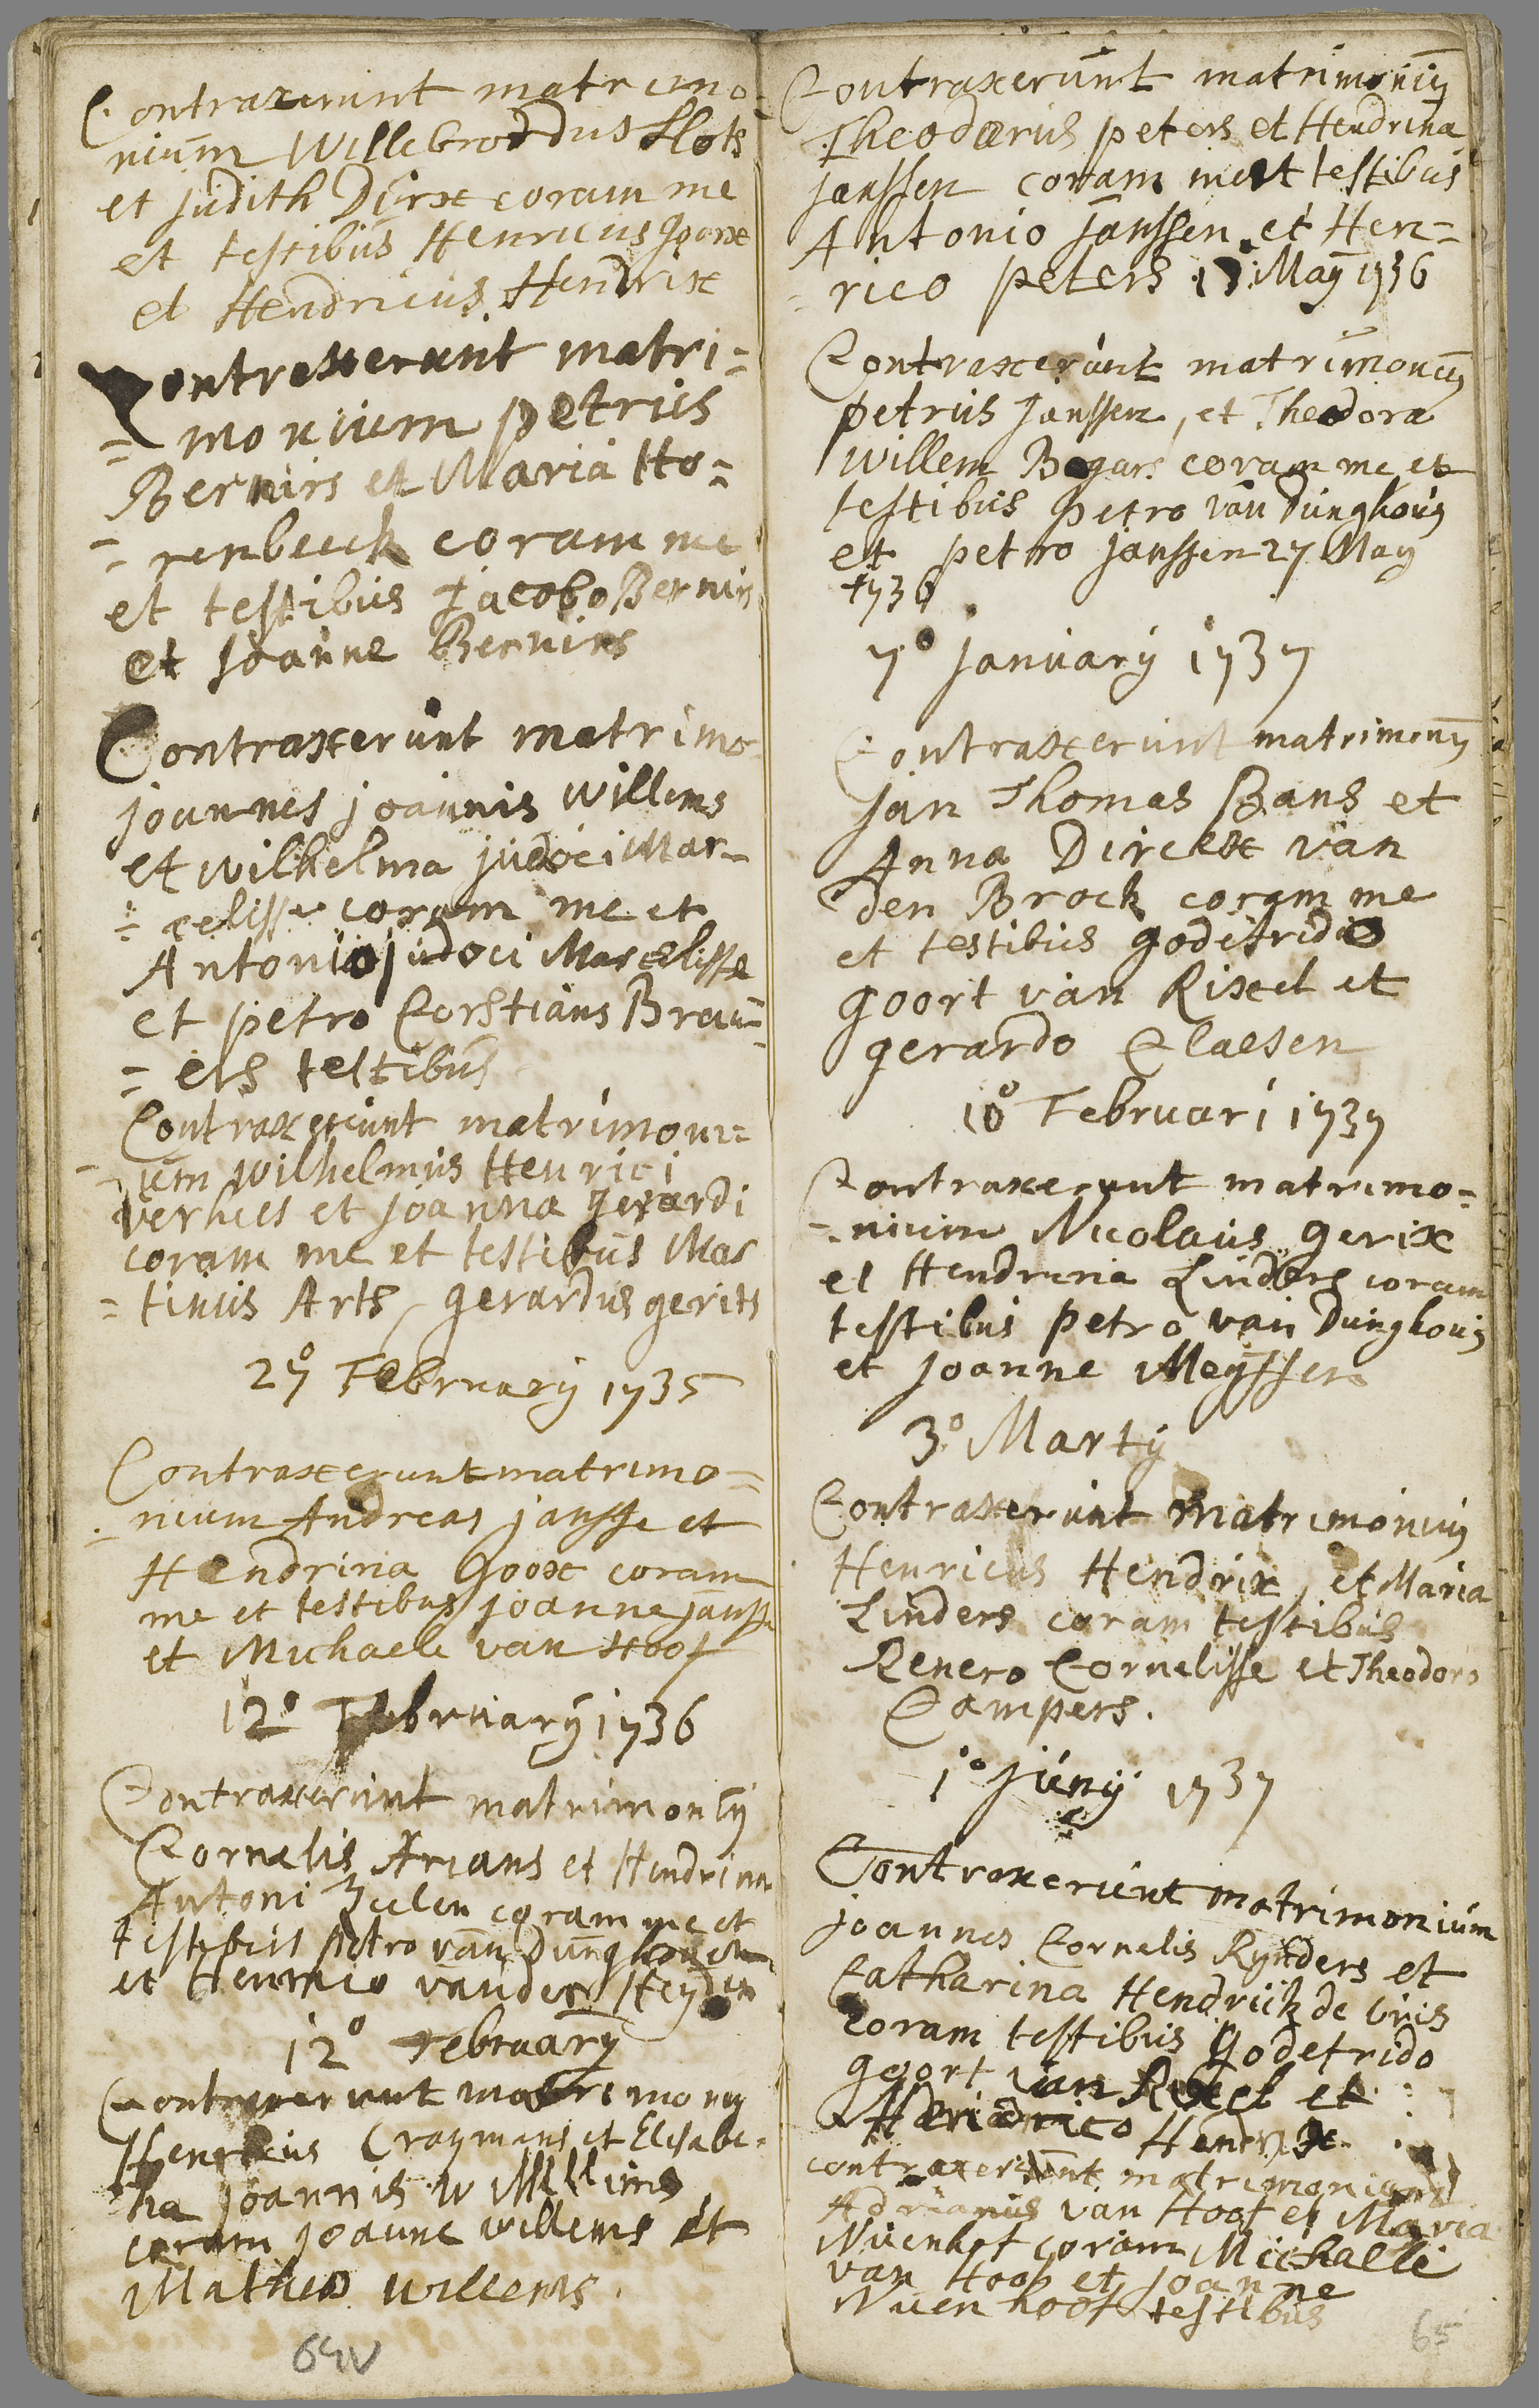 Contraxerunt matrimo
nium Willebroddus Slots
et judith Dirx coram me
et testibus Henricus Goorx
et Hendricus Hendrix
Contraxerunt matri=
= monium petrus
Bernirs et Maria Ho=
= renbeeck coram me
et testibus Jacobo Bernirs
et joanne Bernirs
Contraxerunt matrimo
joannes joannis willems
et wilhelma judoci Mar=
= celisse coram me et
Antonio judoci Marcelisse
et petro Corstians Brou=
= els testibus
Contraxerunt matrimoni=
= um wilhelmus Henrici
verhees et joanna gerardi
coram me et testibus Mar
= tinus Arts, gerardus gerits
27° February 1735
Contraxerunt matrimo=
= nium Andreas jansse et
Hendrina Goox coram
me et testibus joanne jansse
et Michaele van Hoof
12° February 1736
Contraxerunt matrimoniū
Cornelis Arians et Hendrina
Antoni coram me et
testibus petro van Dunghoven
et Henrico vander Heyden
12° February
Contraxerunt matrimoniū
Henricus Craymans et Elisabe=
tha joannis willems
coram joanne willems et
Matheo willems.
64v
Contraxerunt matrimoniū
Theodorus peters et Hendrina
janssen coram me et testibus
Antonio janssen et Hen=
= rico peters 13 May 1736
Contraxerunt matrimoniū
petrus Janssen, et Theodora
willem Bogars coram me et
testibus petro van Dunghoūn
et petro janssen 27 May
1736
7° january 1737
Contraxerunt matrimonū
jan Thomas Bans et
Anna Dirckx van
den Brock coram me
et testibus godefrido
goort van Rixtel et
gerardo Claesen
10° Februari 1737
Contraxerunt matrimo=
= nium Nicolaus gerix
et Hendrina Linders coram
testibus petro van Dunghoūn
et joanne Meyssen
3° Marty
Contraxerunt matrimoniū
Henricus Hendrix, et Maria
Linders coram testibus
Renero Cornelisse et Theodoro
Campers.
1° juny 1737
Contraxerunt matrimonium
joannes Cornelis Rynders et
Catharina Hendrick de vris
Coram testibus godefrido
goort van Rixtel et
Hendrico Hendrix
contraxerunt matrimonium
Adrianus van Hoof et Maria
Nuenhof coram Michaele
van Hoof et joanne
Nuenhoof testibus
65